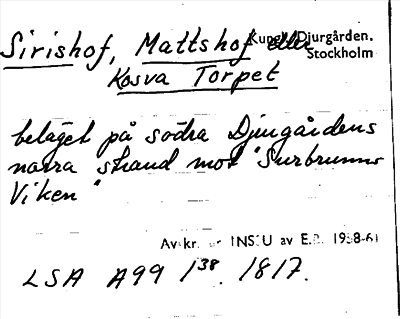 Sirishof, Mattshof eller
Kungl. Djurgården.
Stockholm
Kosva Torpet
beläget på södra Djurgårdens
norra strand mot "Surbrunns
Viken"
Avskr. ur INSU av E.B. 1958-61
LSA A99 1 38. 1817.